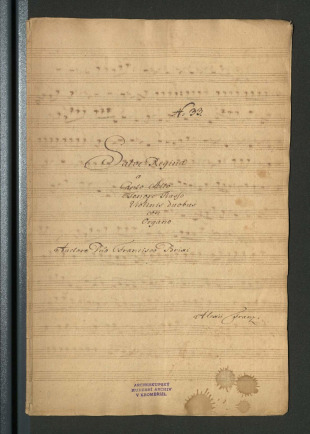 N. 33
Salve Regina
a
Canto Alto
Tenore Basso
Violinis duobus
con
Organo
Authore D: Francisco
ARCIBISKUPSKÝ
HUDEBNÍ ARCHIV
V KROMĚŘÍŽI.